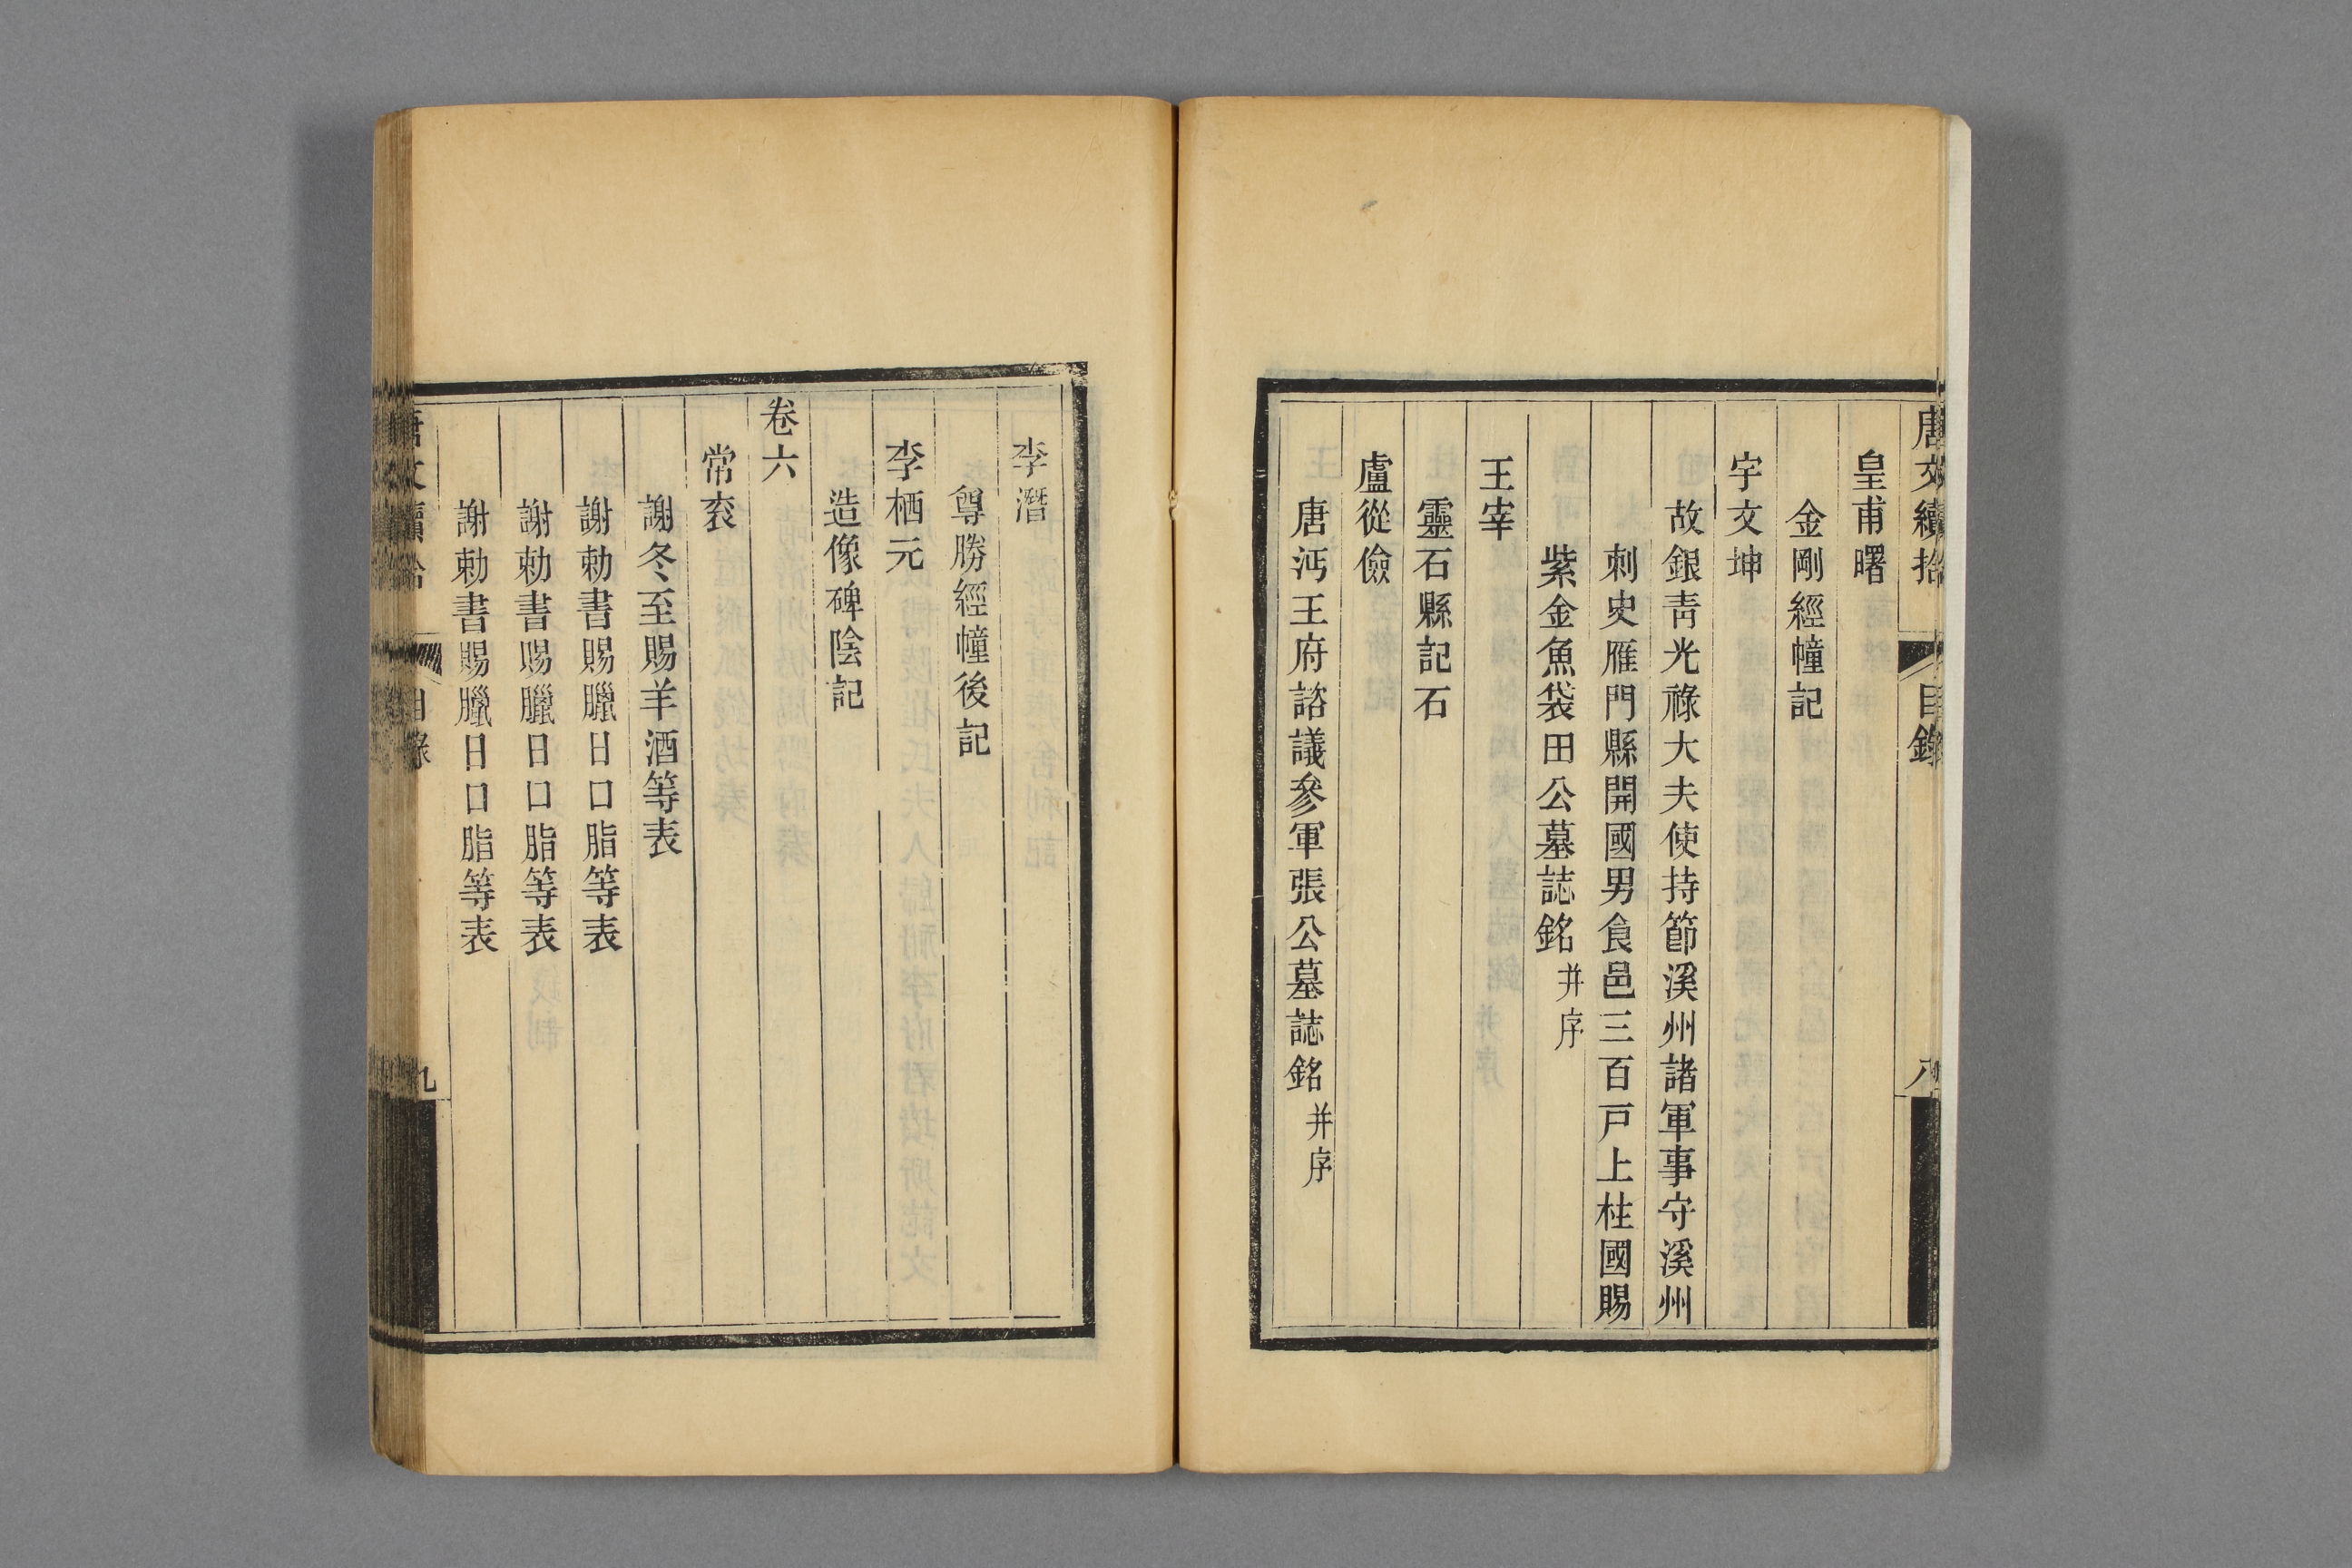 唐文續拾
目錄
八
皇甫曙
金剛經幢記
宇文坤
故銀靑光祿大夫使持節溪州諸軍事守溪州
刺史雁門縣開國男食邑三百戸上柱國賜
紫金魚袋田公墓誌銘并序
王宰
靈石縣記石
盧從儉
唐沔王府諮議參軍張公墓誌銘并序
李潛
尊勝經幢後記
李栖元
造像碑陰記
卷六
常衮
謝冬至賜羊酒等表
謝勅書賜臘日口脂等表
謝勅書賜臘日口脂等表
謝勅書賜臘日口脂等表
唐文續拾
目錄
九